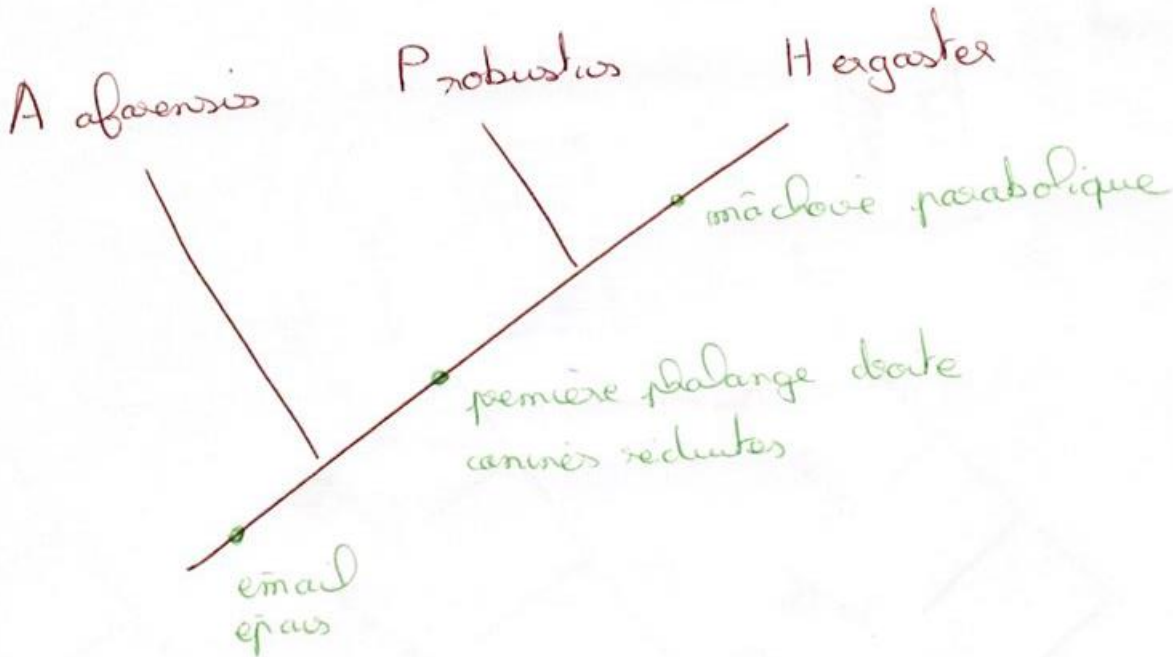 A afarensis
P robustus
H ergaster
mâchoire parabolique
première phalange droite
canines réduites
émail
épais